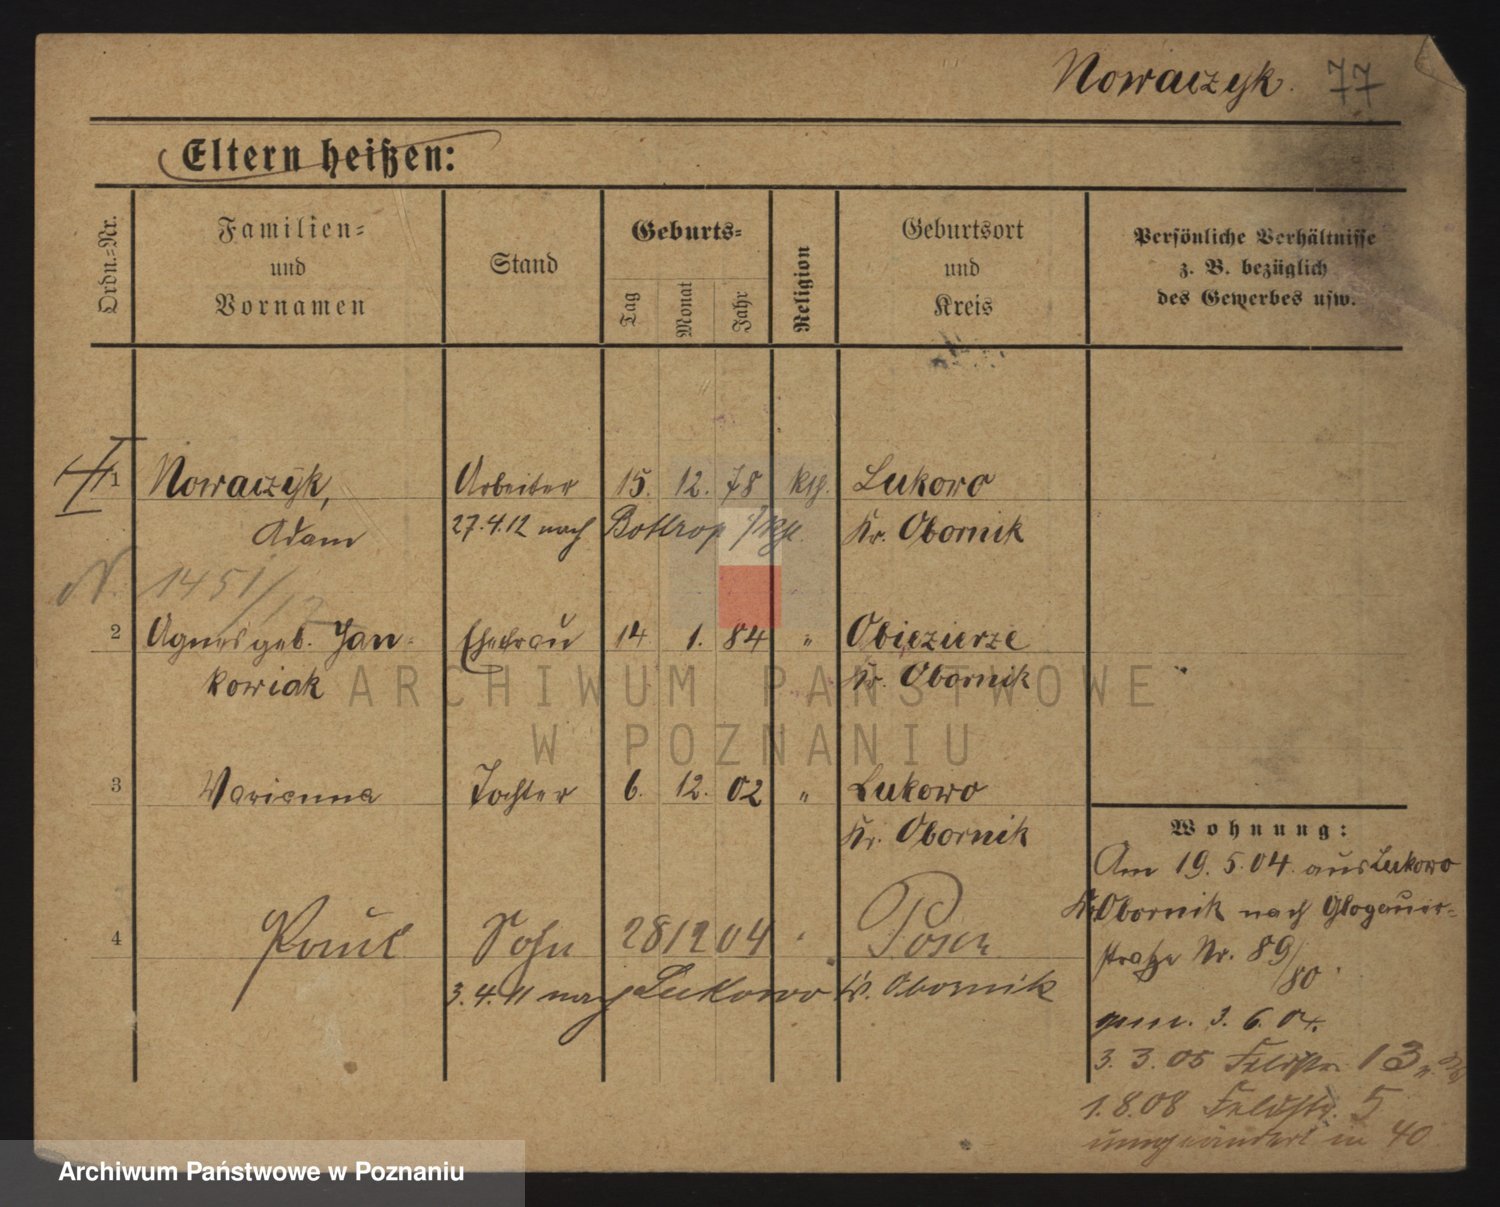 Nowaczyk. 77
Eltern heißen:
Ordn.=Nr.
Familien=
und
Vornamen
Stand
Geburts=
Tag
Monat
Jahr
Religion
Geburtsort
und
Kreis
Persönliche Verhältnisse
z. B. bezüglich
des Gewerbes usw.
1 Nowaczyk, Arbeiter 15. 12. 78 kth. Lukowo
Adam 27.4.12 nach Bottrop Kr. Obornik
N. 1451/12
2 Agnes geb. Jan- Ehefrau 14 1. 84 " Obiezierze
kowiak Kr. Obornik
3 Marianna Tochter 6. 12. 02 " Lukowo
Kr. Obornik
4 Paul Sohn 28 12 04 Posen
3.4.11 nach Lukowo Kr. Obornik
Wohnung:
Am 19.5.04. aus Lukowo
Kr. Obornik nach Glogauer-
straße Nr. 89/80.
gem. 3.6.04.
3.3.05 Feldstr. 13
1.8.08 Feldstr. 5
umgeändert in 40
ARCHIWUM PAŃSTWOWE
W POZNANIU
Archiwum Państwowe w Poznaniu